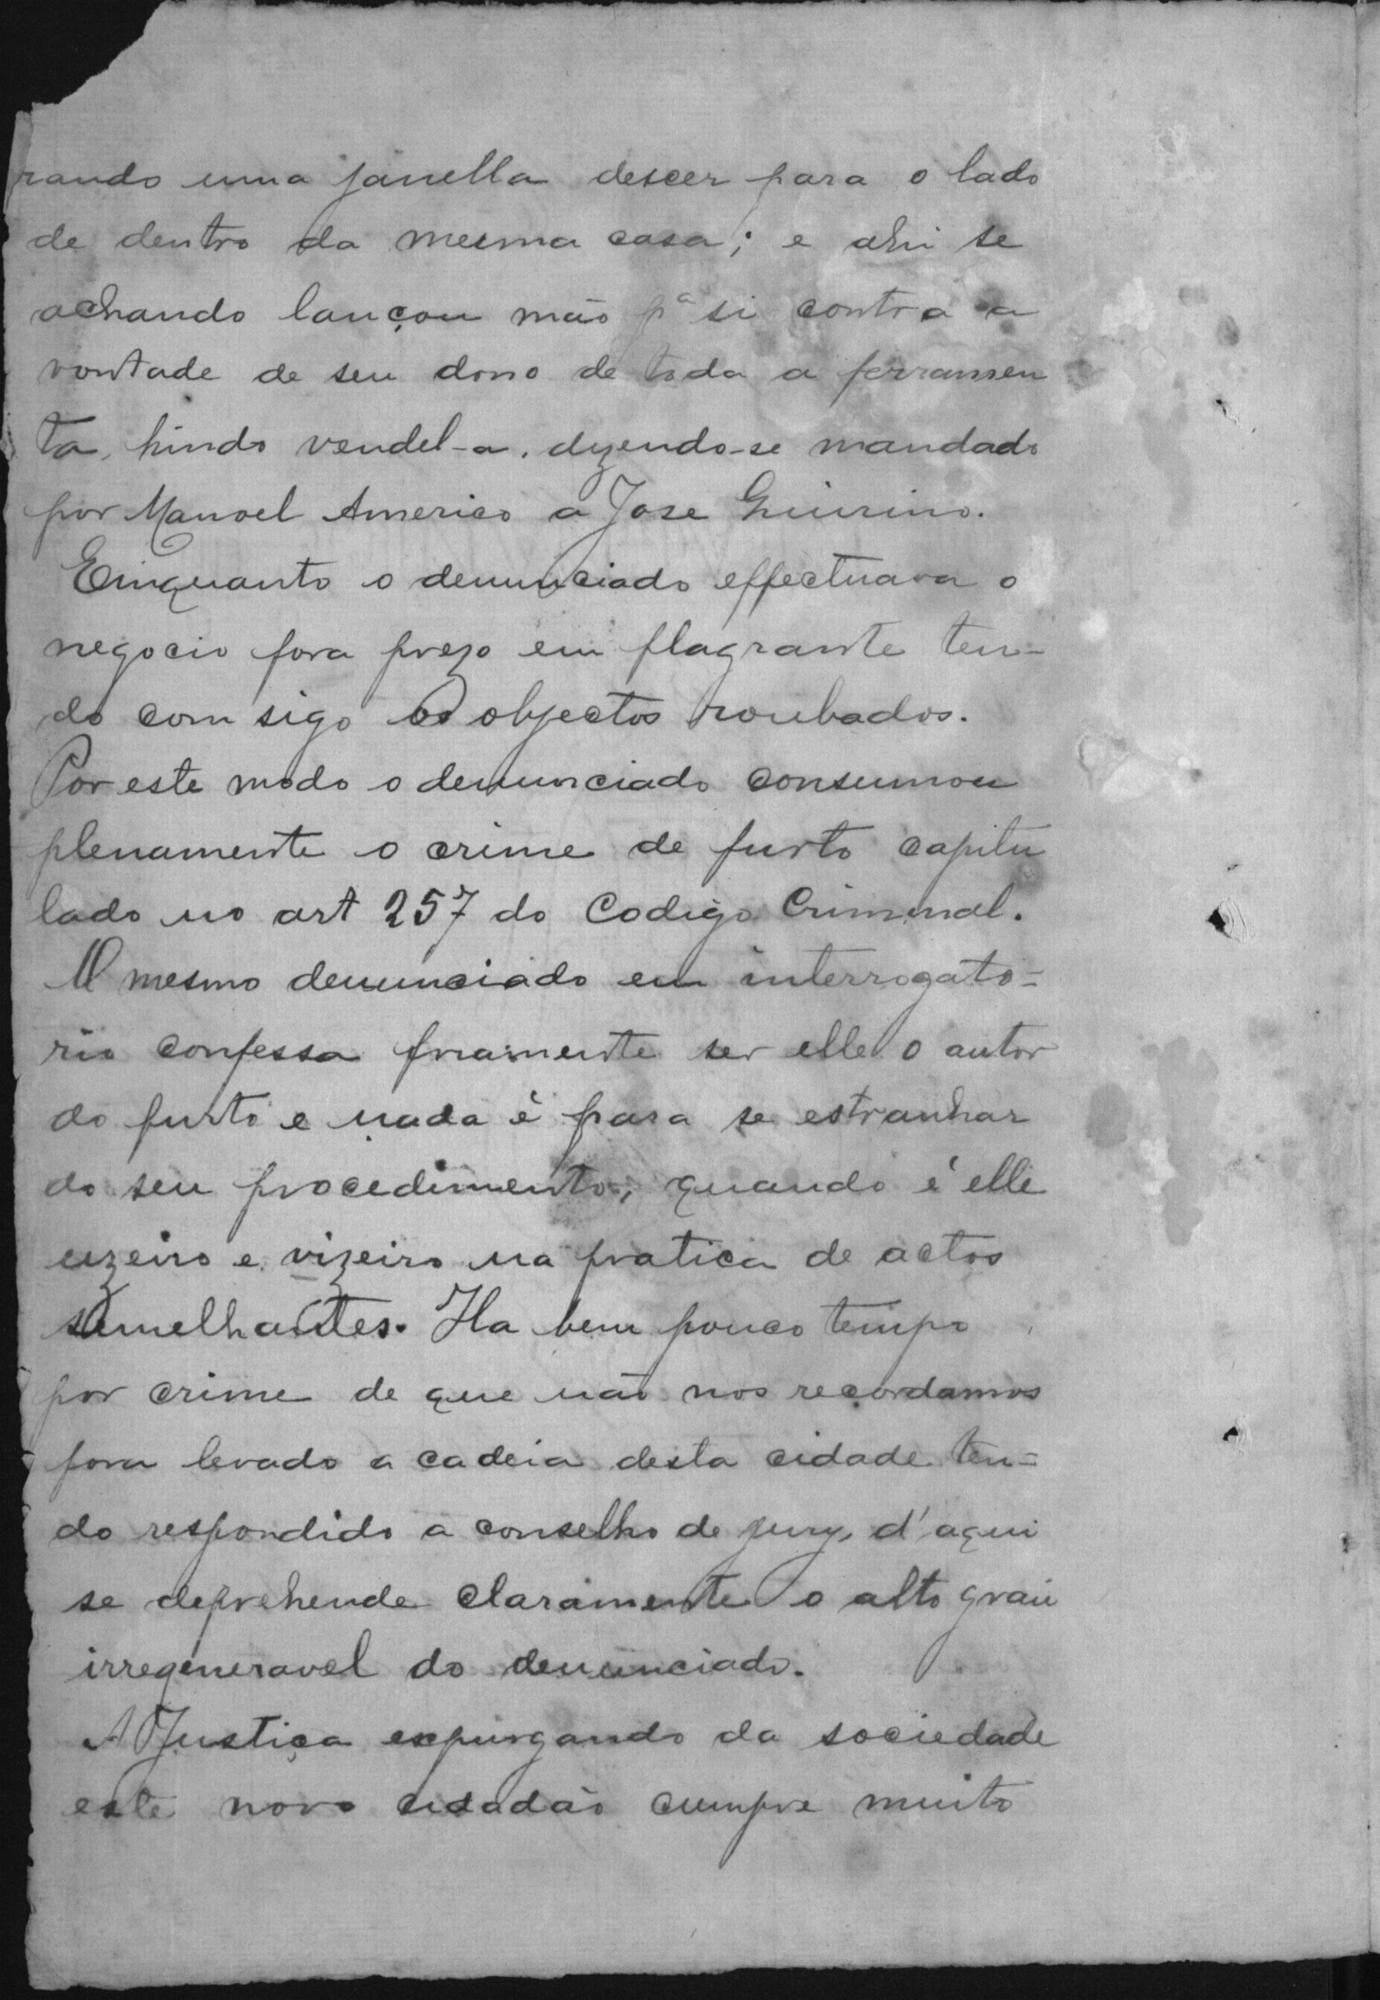 rando uma janella descer para o lado
de dentro da mesma casa; e ahi se
achando lançou mão pª si contra a
vontade de seu dono de toda a ferramen
ta, hindo vendel-a, dizendo-se mandado
por Manoel Americo a Jose
Emquanto o denunciado effectuava o
negocio fora prezo em flagrante ten-
do com sigo os objectos roubados.
Por este modo o denunciado consumou
plenamente o crime de furto capitu
lado no art 257 do Codigo Criminal.
O mesmo denunciado em interrogato-
rio confessa friamente ser elle o autor
do furto e nada é para se estranhar
do seu procedimento, quando é elle
uzeiro e vizeiro na pratica de actos
semelhantes. Ha bem pouco tempo
por crime de que não nos recordamos
fora levado a cadeia desta cidade ten-
do respondido a conselho de jury, d'aqui
se deprehende claramente o alto grau
irregeneravel do denunciado.
A Justiça expurgando da sociedade
este novo cidadão cumpre muito